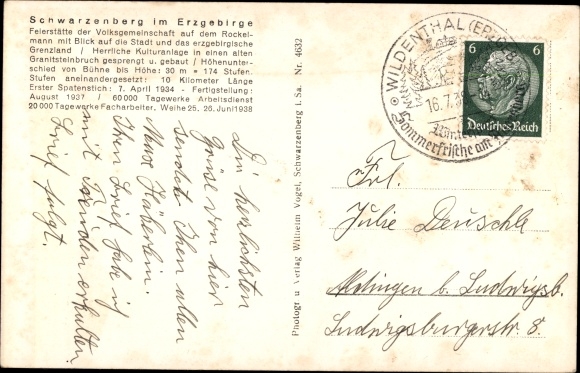 Schwarzenberg im Erzgebirge
Feierstätte der Volksgemeinschaft auf dem Rockel-
mann mit Blick auf die Stadt und das erzgebirgische
Grenzland / Herrliche Kulturanlage in einen alten
Granitsteinbruch gesprengt u. gebaut / Höhenunter-
schied von Bühne bis Höhe: 30 m = 174 Stufen.
Stufen aneinandergesetzt: 10 Kilometer Länge
Erster Spatenstich: 7. April 1934 - Fertigstellung:
August 1937 / 60000 Tagewerke Arbeitsdienst
20000 Tagewerke Facharbeiter. Weihe 25. 26. Juni 1938
Die herzlichsten
Grüße von hier
sendet Ihnen allen
Minna Häberlein.
Ihren Brief habe ich
mit Freuden erhalten.
Brief folgt.
Photogr u Verlag Wilhelm Vogel, Schwarzenberg i. Sa. Nr. 4632
WILDENTHAL (ERZGEB
16.7.3
Sommerfrische am
6 6
Deutsches Reich
Frl.
Julie Deuschle
Aldingen b. Ludwigsb.
Ludwigsburgerstr 8.